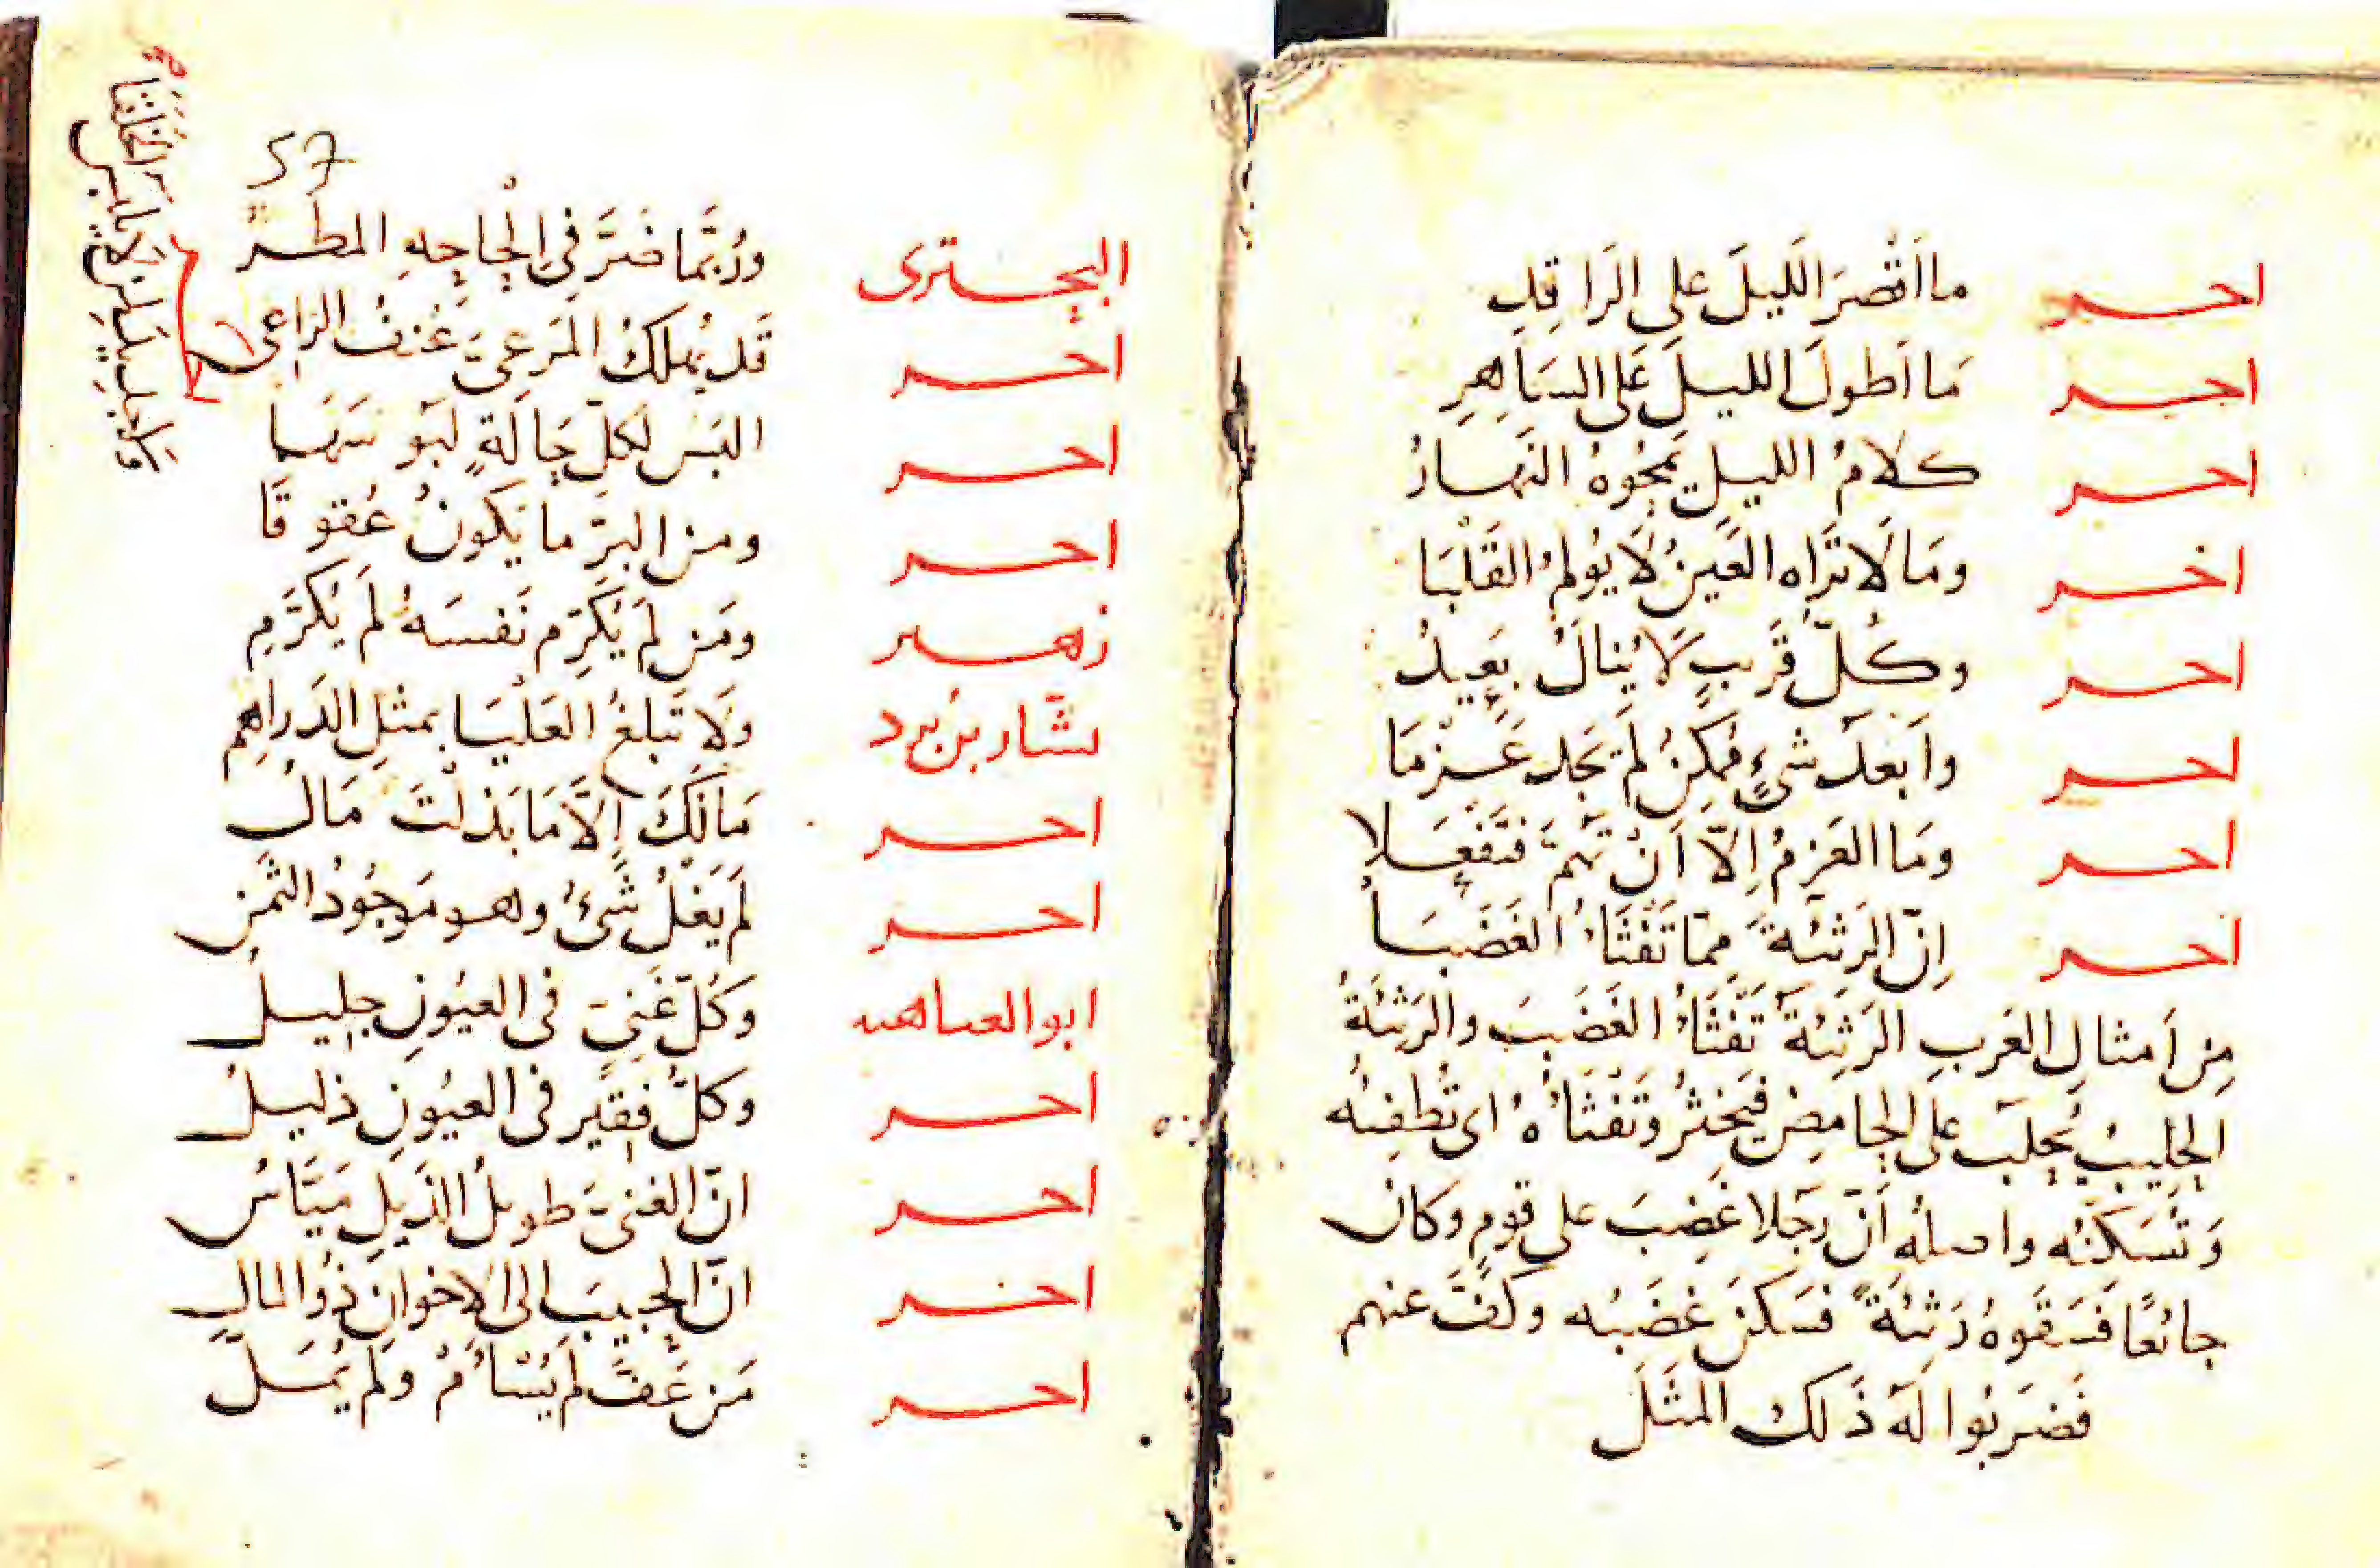 اخر ما اَقْصَرَ اللَيلَ على الرَاقِدِ
اخر مَا اَطولَ الليلَ عَلى السَاهِرِ
اخر كلَامُ الليلِ يَمحُوهُ النَهارُ
اخر ومَا لَا تَرَاه العَينُ لَا يُولمُ القَلْبَا
اخر وكُلّ قَريبٍ لَا يُنالُ بَعِيدُ
اخر واَبعدُ شىءٍ مُمكِنُ لَم تَجد عَزمَا
اخر ومَا العَزمُ اِلّا اَنْ تَهُمّ فتَفعَلا
اخر اِنّ الرَثيئةَ ممّا تَفْثَاُ الغَضَبَا
مِن اَمثالِ العَربِ الرَثيئةُ تَفْثَاُ الغَضَبَ والرَثيئَةُ
الحَلِيبُ يُحلَبُ على الحامِضِ فيَخثرُ وتَفْثَاُهُ اى تُطفِئه
وَتُسَكنُه واصلُه اَنّ رَجُلا غَضِبَ على قومٍ وكانَ
جائعًا فَسَقَوهُ رَثيئَةً فسَكنَ غضَبُه وكَفَّ عنهم
فَضَربُوا لَهَ ذَلكَ المثَلَ
57
البحترى ورُبَّما ضَرَّ فى اِلْحاحِهِ المطَرُ
اخر قَد يُهلكُ المَرعىَ عُنفُ الراعى
اخر البَس لكلّ حَالَةٍ لَبُوسَهَا
اخر ومن البِرّ ما يَكونُ عُقوقَا
زهير ومَن لَم يُكَرِّم نَفسَهُ لَم يُكَرَّمِ
بشّار بن برد ولَا تَبلغُ العَلْيَا بمثلِ الدَراهِمِ
اخر مَا لَكَ اِلّاَ مَا بَذلْتَ مَالُ
اخر لَم يَغْلُ شَىءُ وهو مَوجُودُ الثمَنِ
ابو العتاهيه وكُلّ غَنِىٍّ فى العيُونِ جليلُ
اخر وكلّ فقيرٍ فى العيُونِ ذليلُ
اخر انّ الغنىَ طويلُ الذَيلِ مَيّاسُ
اخر انّ الحبيبَ الى الاخوانِ ذُو المالِ
اخر مَن عَفّ لَم يُسْاَمْ ولَم يُمَلّ